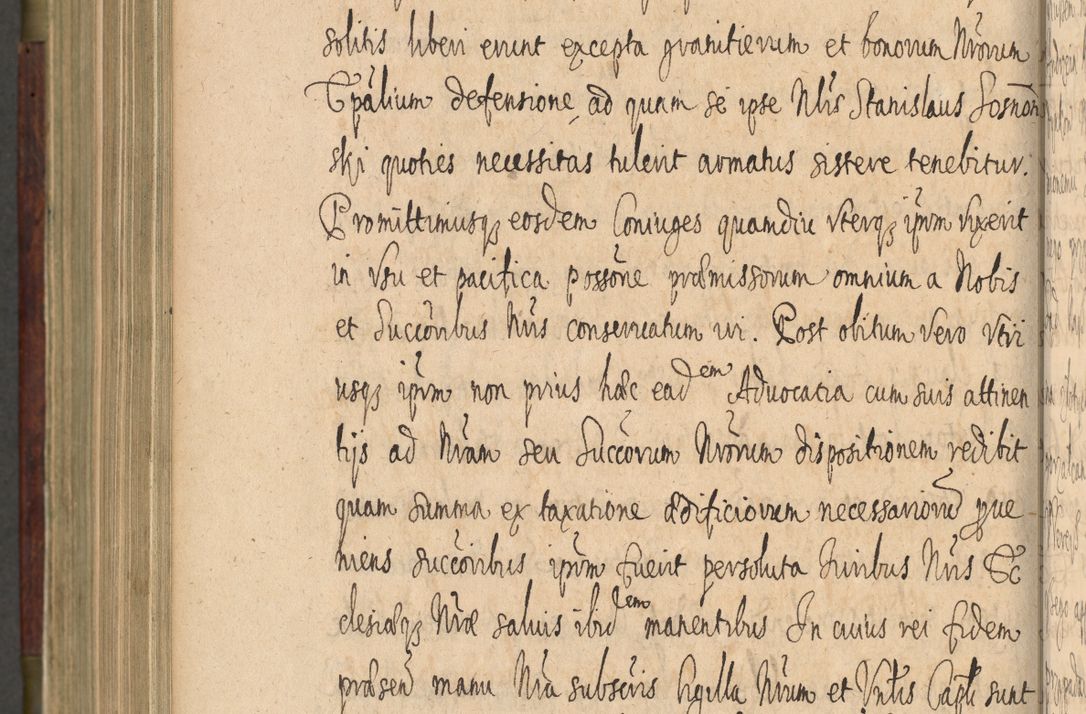 solitis liberi erunt excepta granitierum et bonorum Nrõrum
Epãlium defensione, ad quam se ipse Nlis Stanislaus Sosnõn
ski quoties necessitas tulerit armatus sistere tenebitur.
Promittimusqȝ eosdem Coniuges quamdiu vterqȝ ipm̃ vixerit
in vsu et pacifica possõne præmissorum omnium a Nobis
et Succõribus Nr̃is conseruatum iri. Post obitum vero vtri
usqȝ ipr̃m non prius hæc eadem Aduocatia cum suis attinen
tijs ad Nr̃am seu Succõrum Nrõrum dispositionem redibit
quam summa ex taxatione ædificiorum necessariorũ prue
niens succõribus ipr̃m fuerit persoluta Juribus Nr̃is Ec
clesiæqȝ Nr̃æ saluis ibidem manentibus In cuius rei fidem
præsen̄ manu Nr̃a subscr̃is sigilla Nr̃um et Vnl̃is Capl̃i sunt